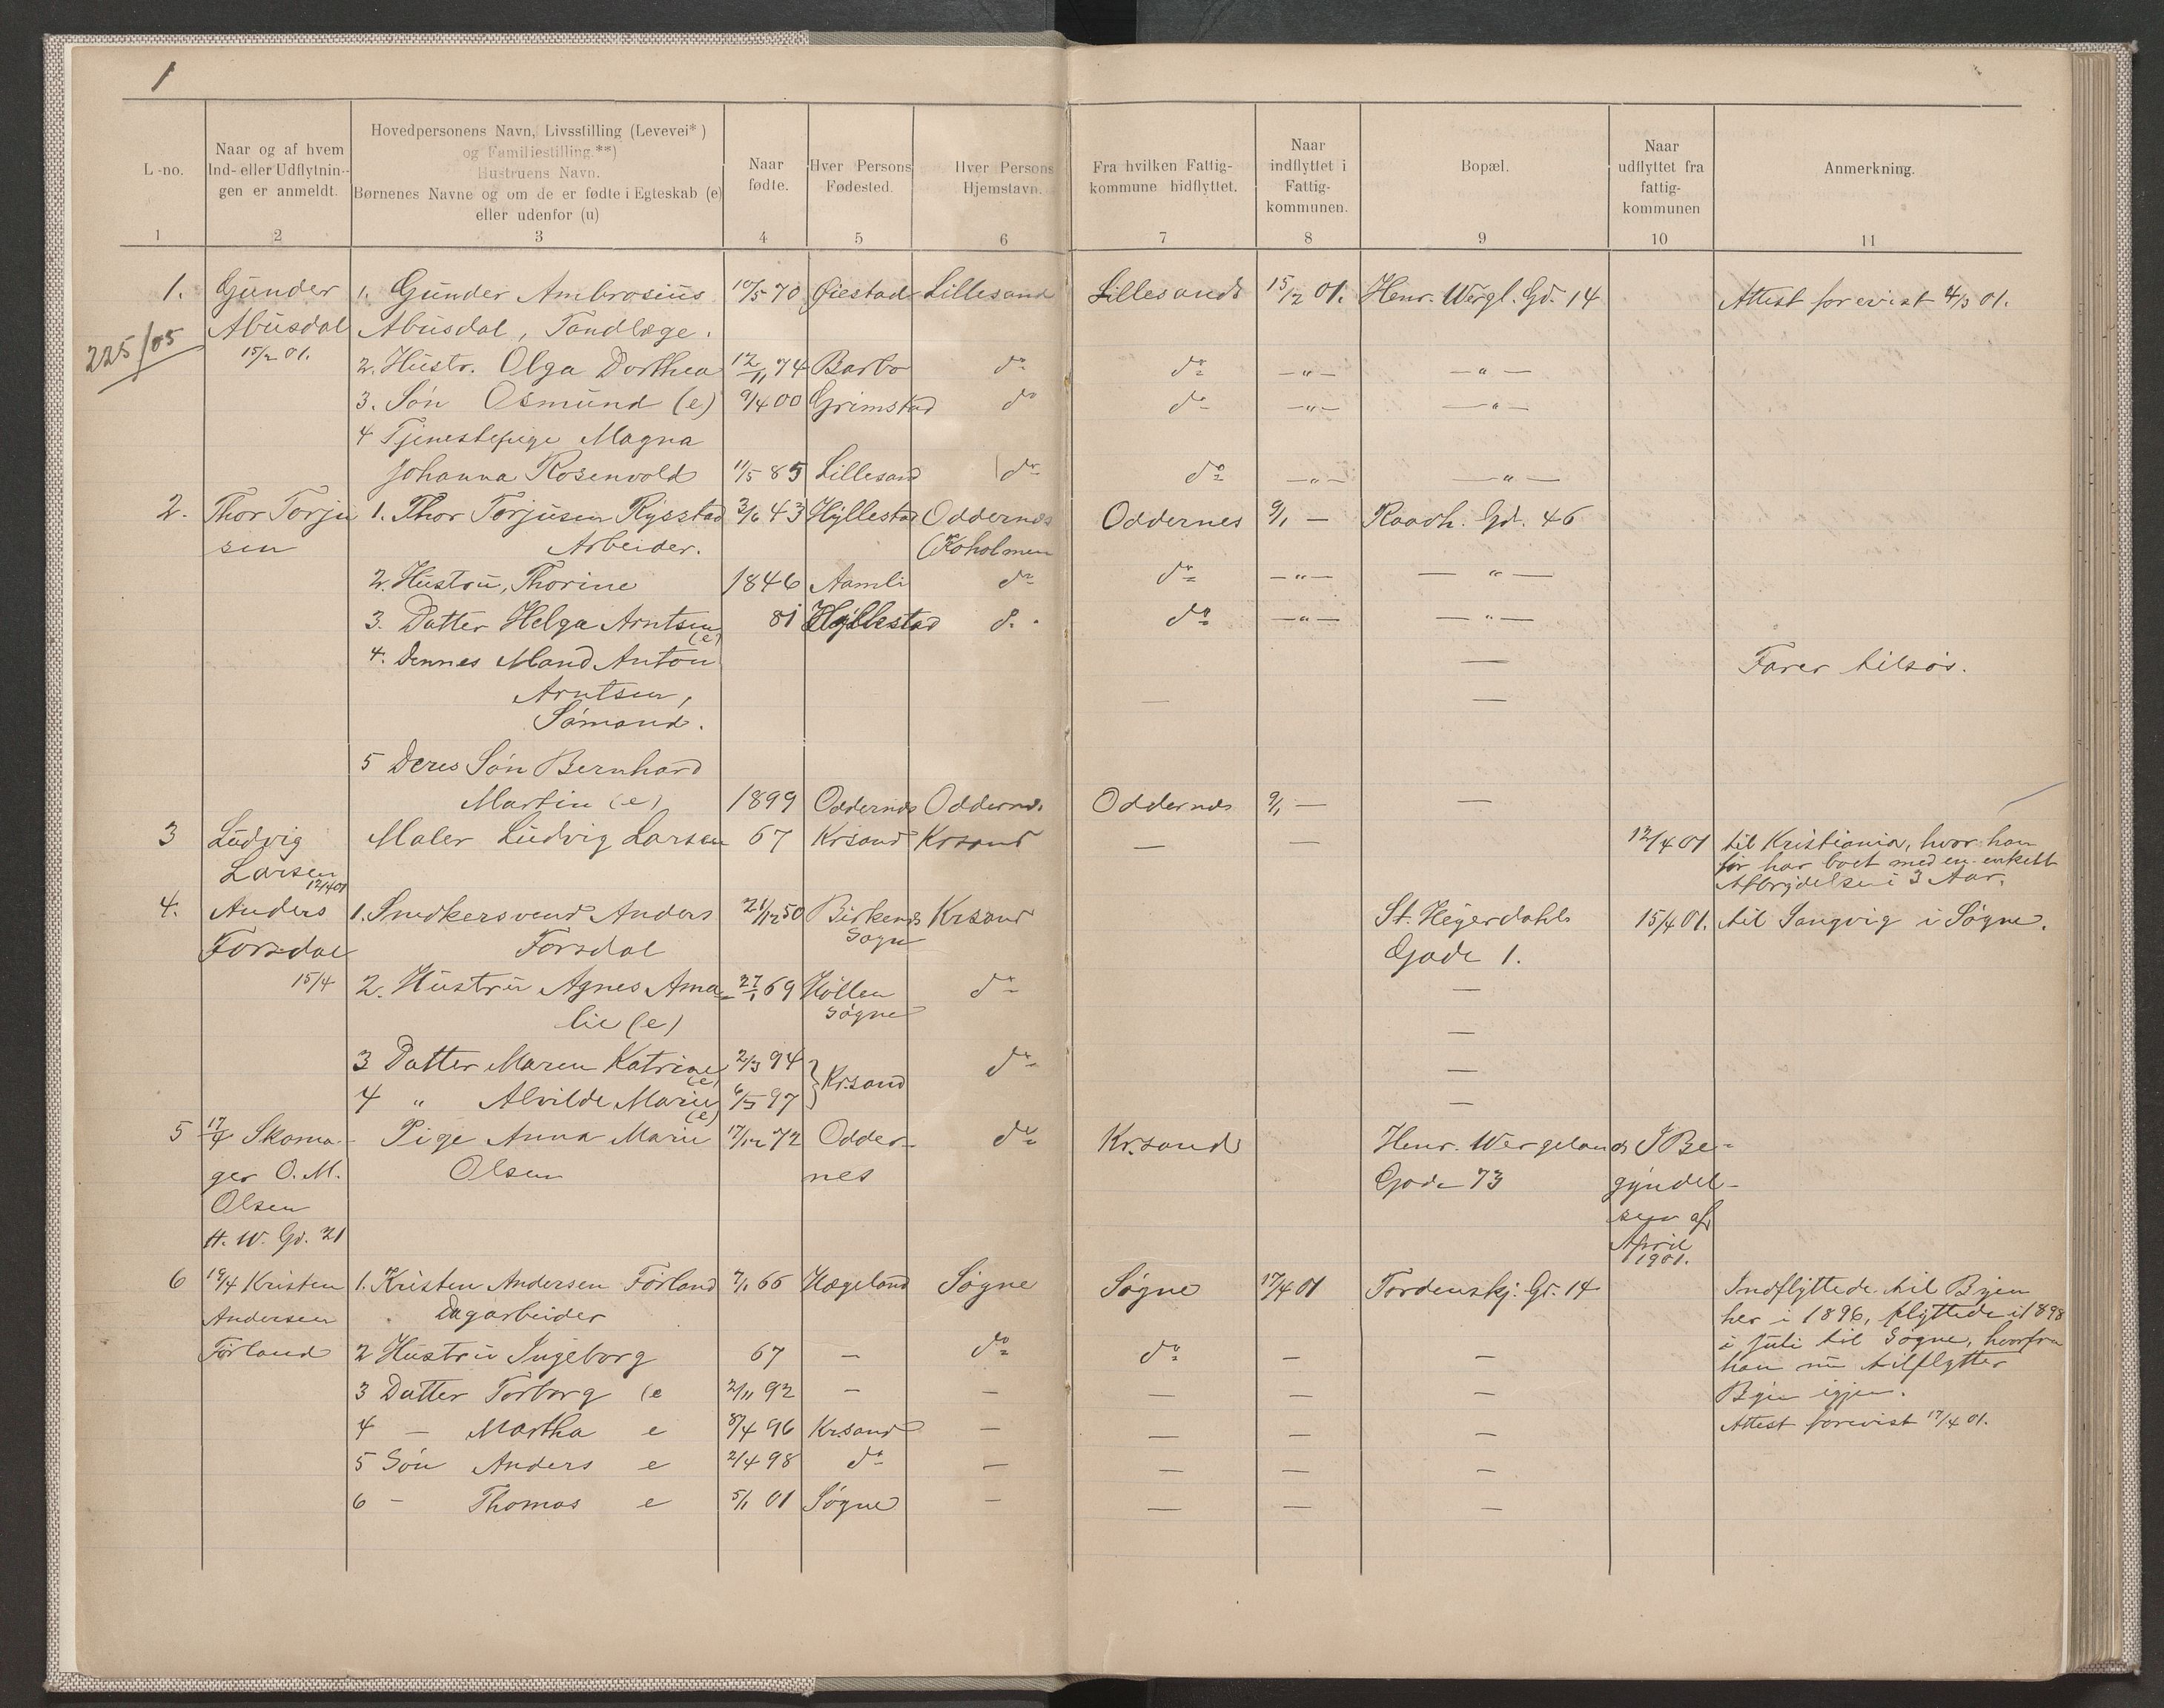 1
L-no. | Naar og af hvem Ind- eller Udflytningen er anmeldt. | Hovedpersonens Navn, Livsstilling (Levevei*) og Familiestilling.**) Hustruens Navn. Børnenes Navne og om de er fødte i Egteskab (e) eller udenfor (u) | Naar fødte. | Hver Persons Fødested. | Hver Persons Hjemstavn. | Fra hvilken Fattigkommune hidflyttet. | Naar indflyttet i Fattigkommunen. | Bopæl. | Naar udflyttet fra fattigkommunen | Anmerkning.
1 2 3 4 5 6 7 8 9 10 11
1. Gunder 1. Gunder Ambrosius 10/5 70 Øiestad Lillesand Lillesand 15/2 01. Henr. Wergl. Gd. 14 Attest forevist 4/3 01.
225/05 Abusdal Abusdal, Tandlæge.
15/2 01. 2. Hustr. Olga Dorthea 12/11 74 Barbo do do —"— —"—
3. Søn Osmund (e) 9/4 00 Grimstad do do —"— —"—
4 Tjenestepige Magna
Johanna Rosenvold 11/5 85 Lillesand do do —"— —"—
2. Thor Torju 1. Thor Torjusen Rysstad 3/6 43 Hyllestad Oddernes Oddernes 9/1 — Raadh. Gd. 46
sen Arbeider. (Koholmen
2. Hustru, Thorine 1846 Aamli do do —"— —"—
3. Datter Helga Arntsen (e) 81 Hyllestad d. do —"— —"—
4. Dennes Mand Anton — Farer tilsøs.
Arntsen, — —
Sømand.
5 Deres Søn Bernhard
Martin (e) 1899 Oddernes Oddernes Oddernes 9/1 — —
3 Ludvig Maler Ludvig Larsen 67 Krsand Krsand — — 12/4 01 til Kristiania, hvor han
Larsen før har boet med en enkelt
12/4 01 Afbrydelse i 3 Aar.
4. Anders 1. Snedkersvend Anders 21/12 50 Birkenes Krsand St. Hegerdahls 15/4 01. til Langvig i Søgne.
Forsdal Forsdal Sogn Gade 1.
15/4 2. Hustru Agnes Ama- 27/1 69 Høllen do —
lie (e) Søgne —
3 Datter Maren Katrine (e) 2/3 94 } Krsand do —
4 " Alvilde Marie (e) 6/5 97 —
5 17/4 Skoma- Pige Anna Marie 17/12 72 Odder- do Kr.sand Henr. Wergelands I Be-
ger O. M. Olsen nes Gade 73 gyndel-
Olsen sen af
H. W. Gd. 21 April 1901.
6 19/4 Kristen 1. Kristen Andersen Førland 7/1 66 Hægeland Søgne Søgne 17/4 01 Tordenskj. Gd. 14 Indflyttede til Byen
Andersen Dagarbeider her i 1896, flyttede i 1898
Førland i Juli til Søgne, hvorfra
2 Hustru Ingeborg 67 — do do — — han nu tilflytter
3 Datter Torborg (e 2/11 92 — — — — — Byen igjen.
4 — Martha e 8/4 96 Krsand — — — — Attest forevist 17/4 01.
5 Søn Anders e 2/4 98 do — — — —
6 - Thomas e 5/1 01 Søgne — — — —